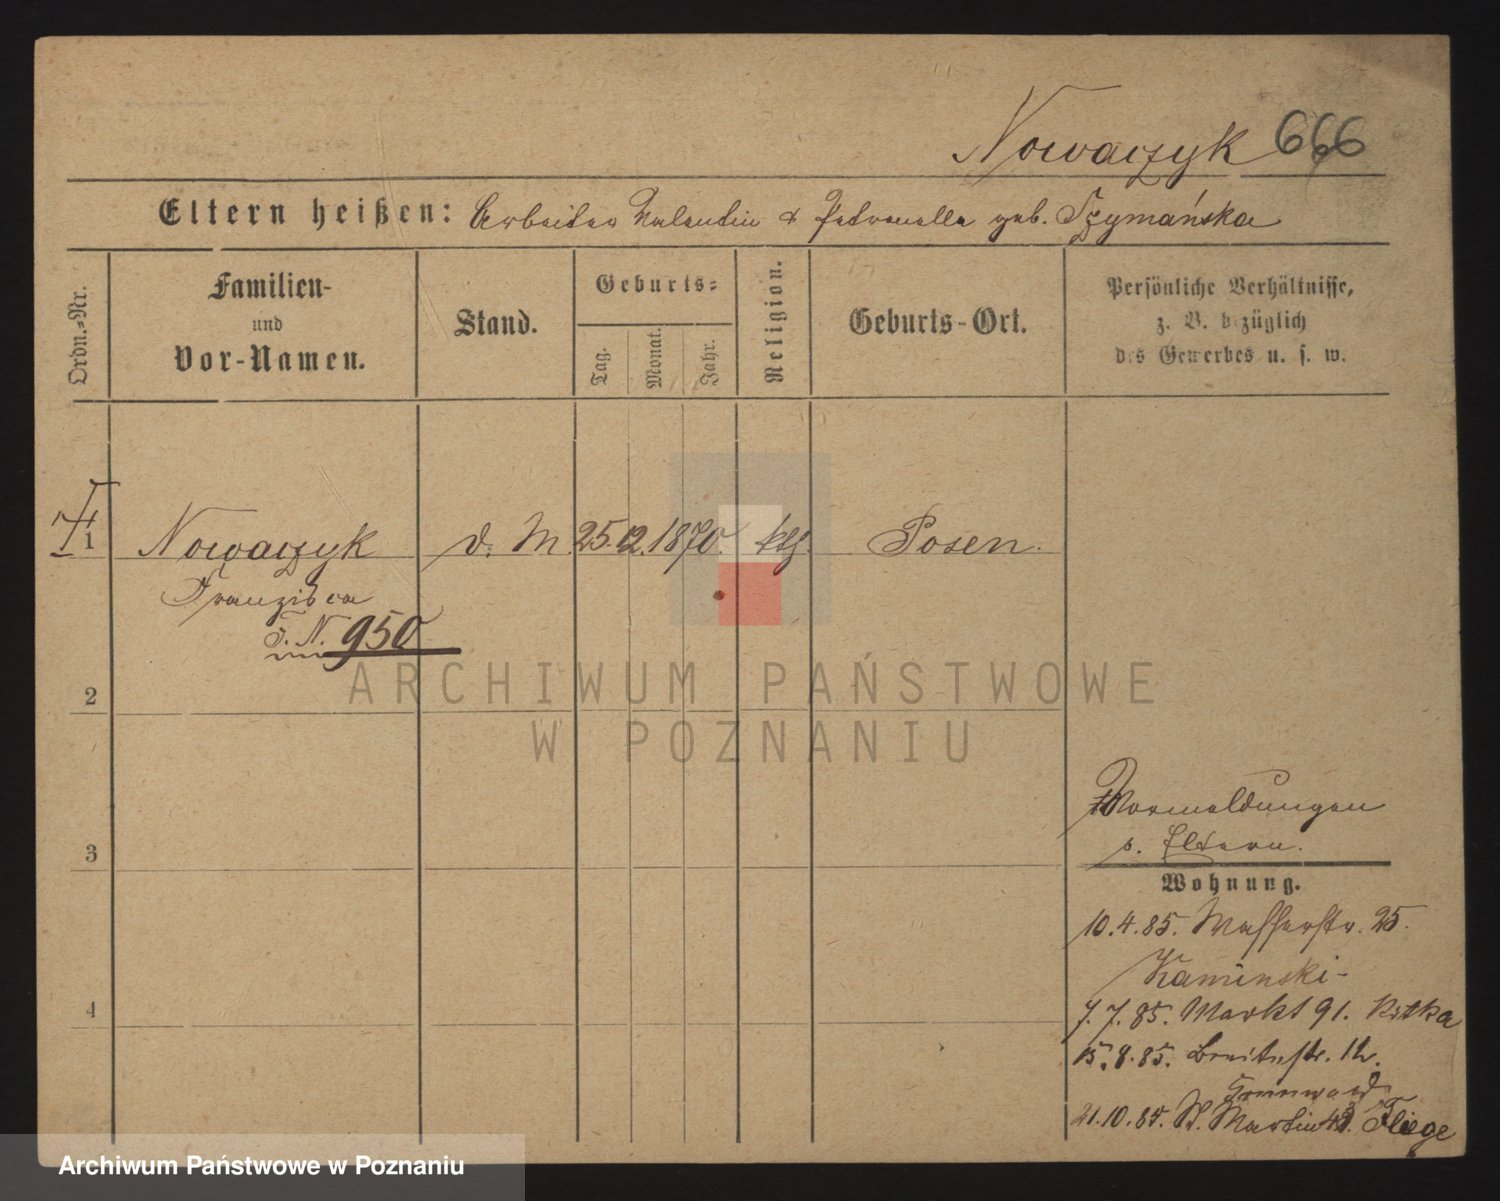 Nowaczyk 666
Eltern heißen: Arbeiter Valentin & Petronella geb. Szymańska
Ordn.=Nr.
Familien-
und
Vor-Namen.
Stand.
Geburts=
Tag.
Monat.
Jahr.
Religion.
Geburts-Ort.
Persönliche Verhältnisse,
z. B. bezüglich
des Gewerbes u. s. w.
1 Nowaczyk d. M. 25. 12. 1870. kth. Posen.
Franzisca
T. N. 950
2
ARCHIWUM PAŃSTWOWE
W POZNANIU
3
4
Vormeldungen
s. Eltern.
Wohnung.
10.4.85. Wasserstr. 25.
Kaminski-
7.7.85. Markt 91.
15.8.85. Breitestr. 12.
Grunwald
21.10.85. St. Martin Fliege
Archiwum Państwowe w Poznaniu